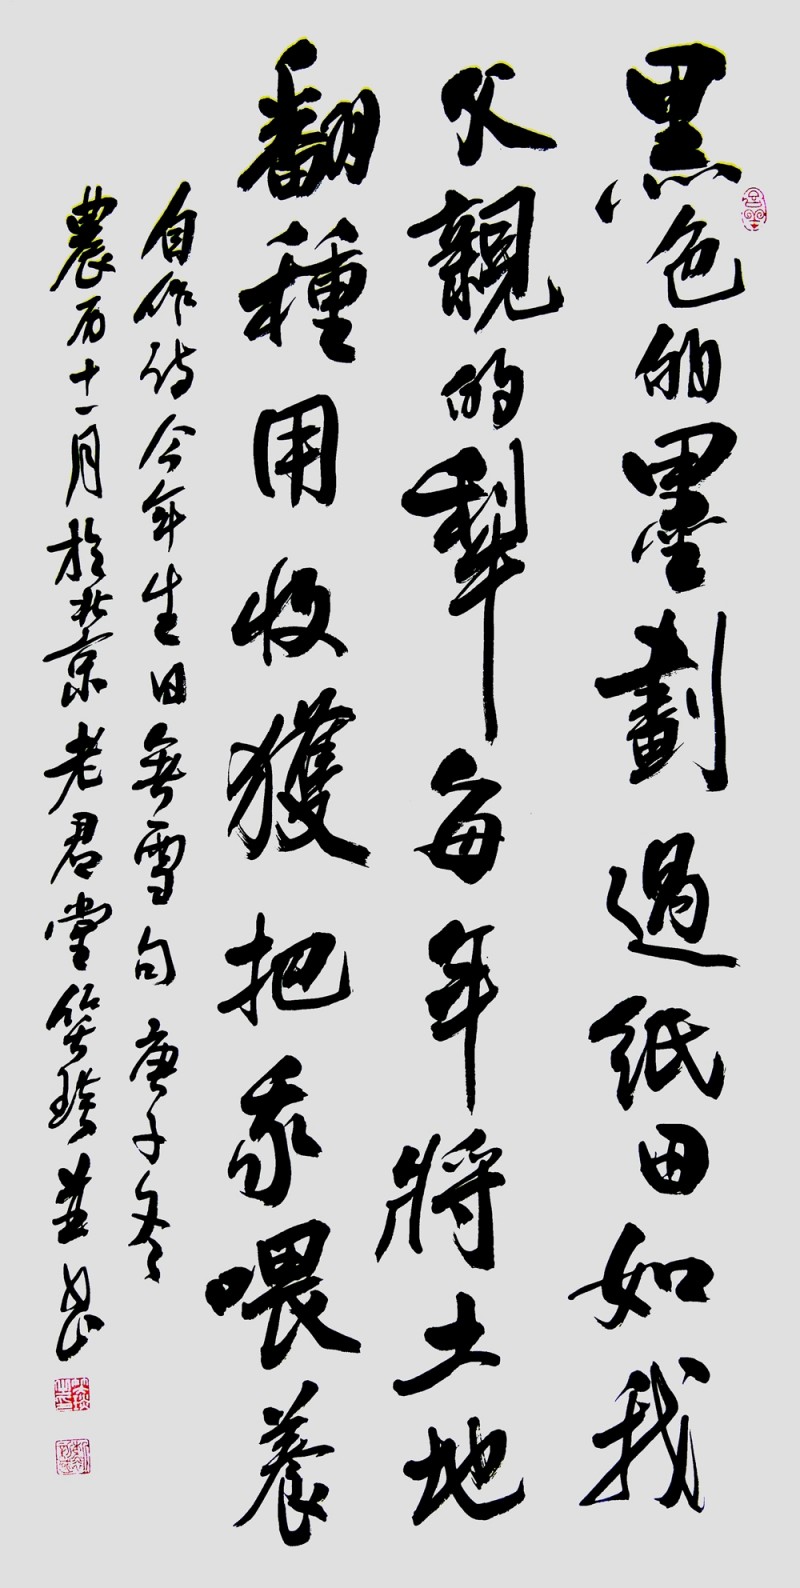 黑色的墨劃過紙田如我
父親的犁每年將土地
翻種用收獲把我喂養
自作詩今年生日無雪句庚子冬
農历十一月於北京老君堂